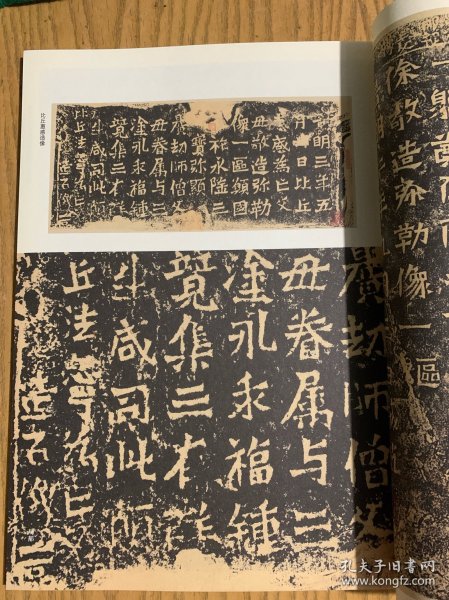 比丘惠感造像
明三年五
月日比丘
感為亡父
母敬造弥勒
像一區願國
祚永隆三
寶弥顯
曠劫師僧父
母眷属与三
塗永乖福鍾
竟集三有群
生咸同此願
比丘法寧為亡
曠劫師僧父
母眷属与三
塗永乖福鍾
竟集三有群
生咸同此願
丘法寧為亡
造石
敬造弥勒像一區
孔夫子旧书网
www.kongfz.com